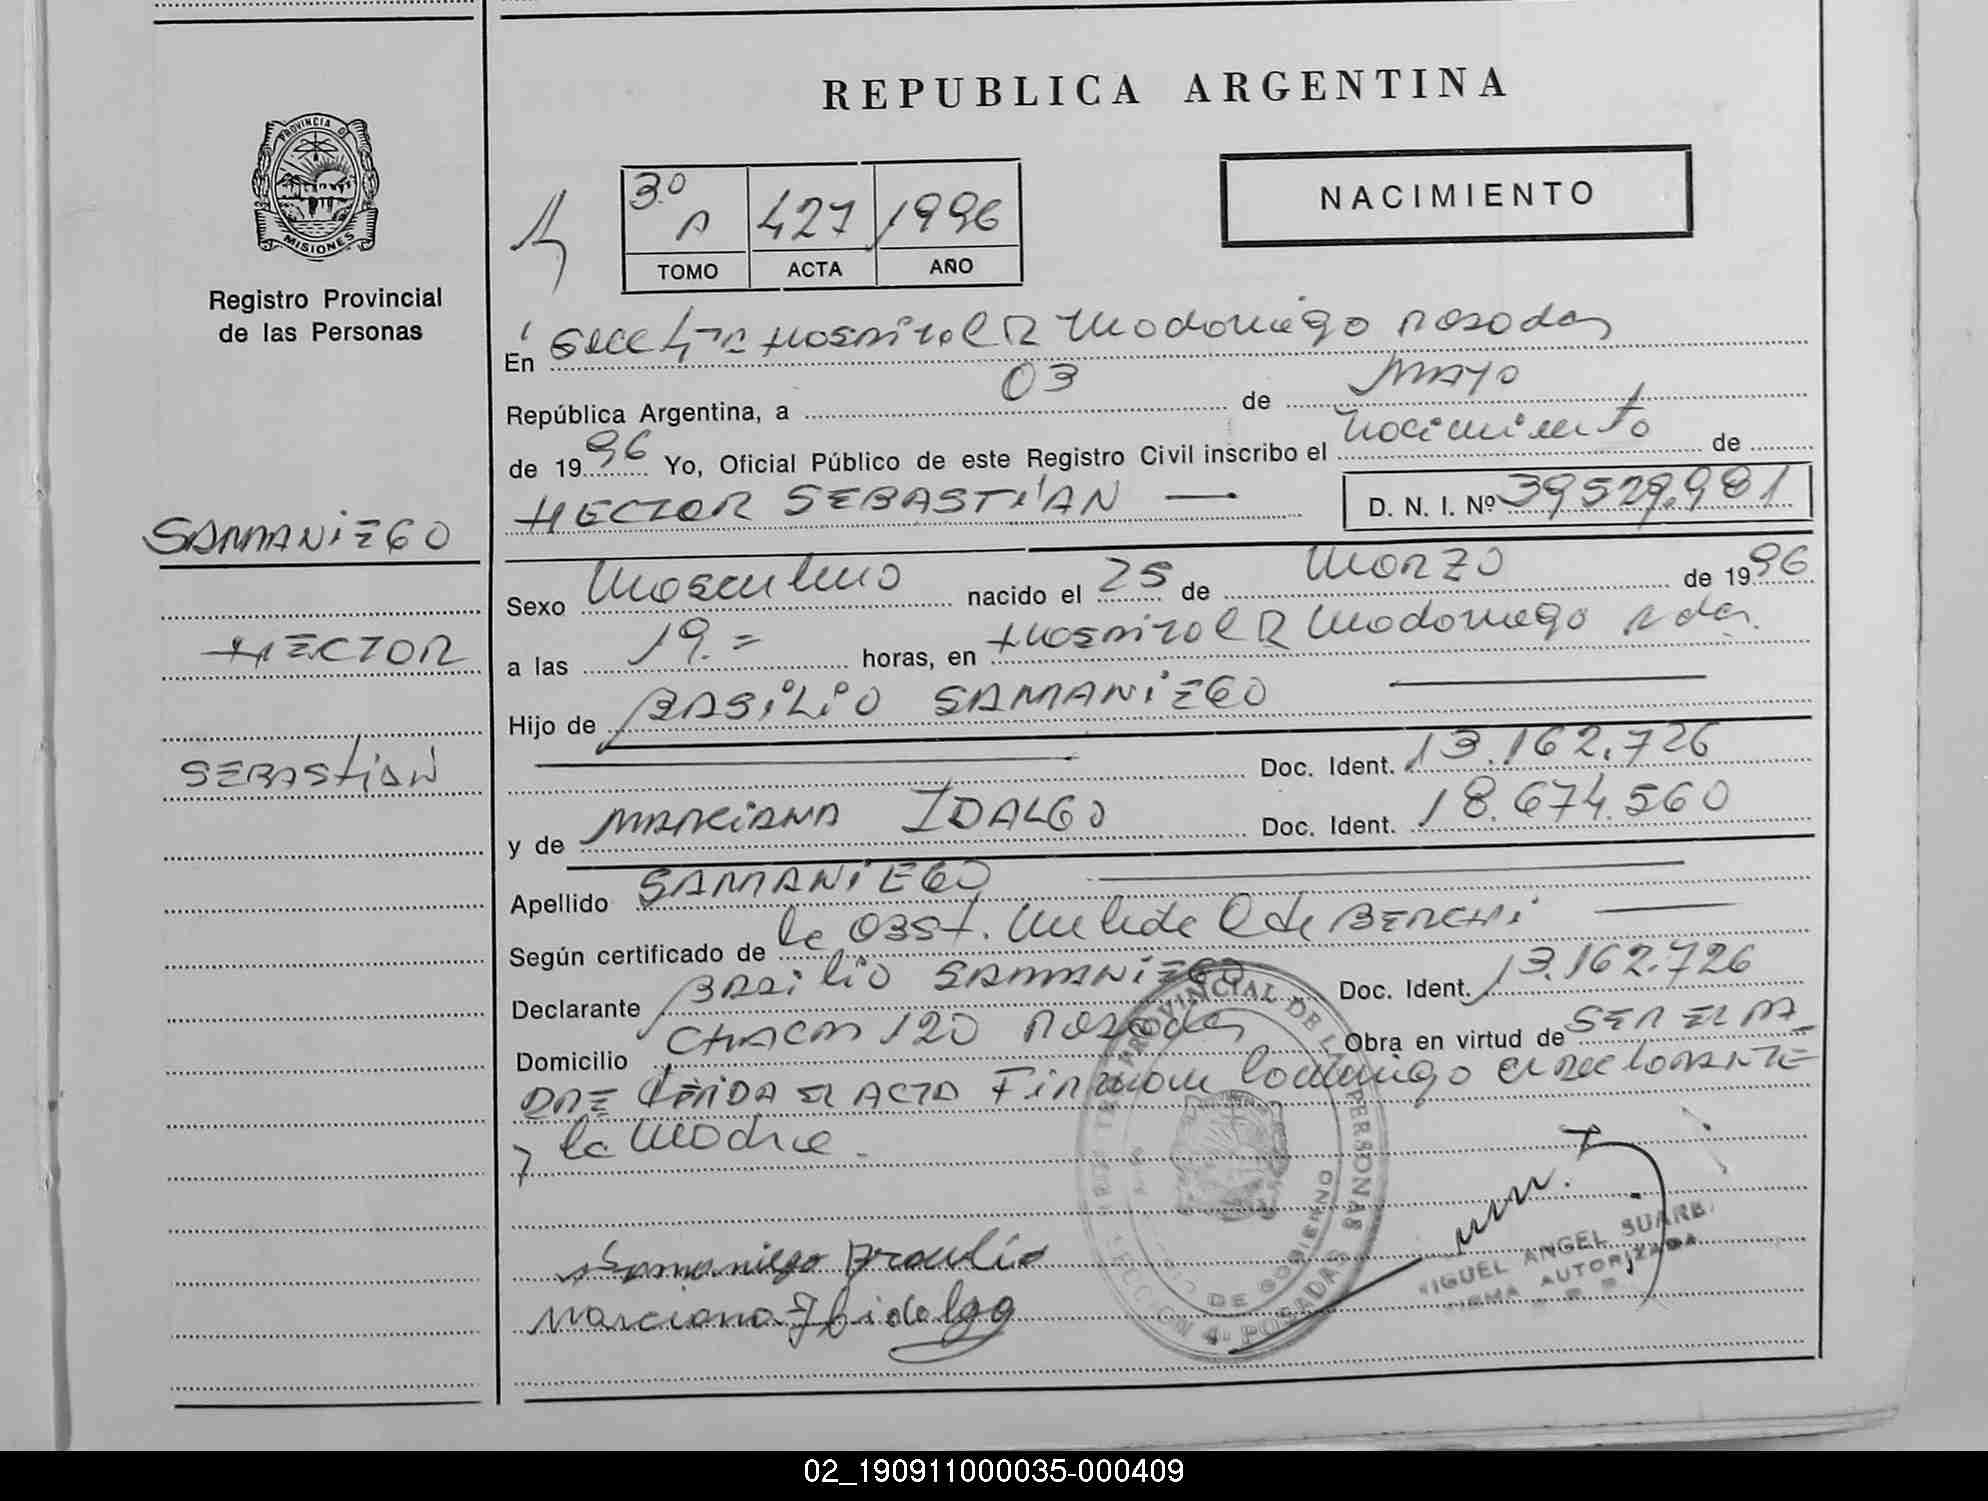 REPUBLICA ARGENTINA
PROVINCIA DE
MISIONES
Registro Provincial
de las Personas
3º A 427 1996
TOMO ACTA AÑO
NACIMIENTO
En Secc 4ta Hospital R Madariaga Posadas
República Argentina, a 03 de MAYO
de 1996 Yo, Oficial Público de este Registro Civil inscribo el nacimiento de
HECTOR SEBASTIAN D. N. I. Nº 39529.981
SAMANIEGO
HECTOR
SEBASTIAN
Sexo Masculino nacido el 25 de Marzo de 1996
a las 19.= horas, en Hospital R Madariaga Pdas.
Hijo de BASILIO SAMANIEGO
Doc. Ident. 13.162.726
y de MARCIANA IDALGO Doc. Ident. 18.674.560
Apellido SAMANIEGO
Según certificado de la Obst. de BERCHI
Declarante BASILIO SAMANIEGO Doc. Ident. 13.162.726
Domicilio CHACO 120 Posadas Obra en virtud de SER EL PA-
DRE LEIDA EL ACTA FIRMAN conmigo el DECLARANTE
y la Madre.
REGISTRO PROVINCIAL DE LAS PERSONAS
DE GOBIERNO
SECCION 4ª POSADAS
Samaniego
Marciana Hidalgo
MIGUEL ANGEL SUAREZ
FIRMA AUTORIZADA
02_190911000035-000409